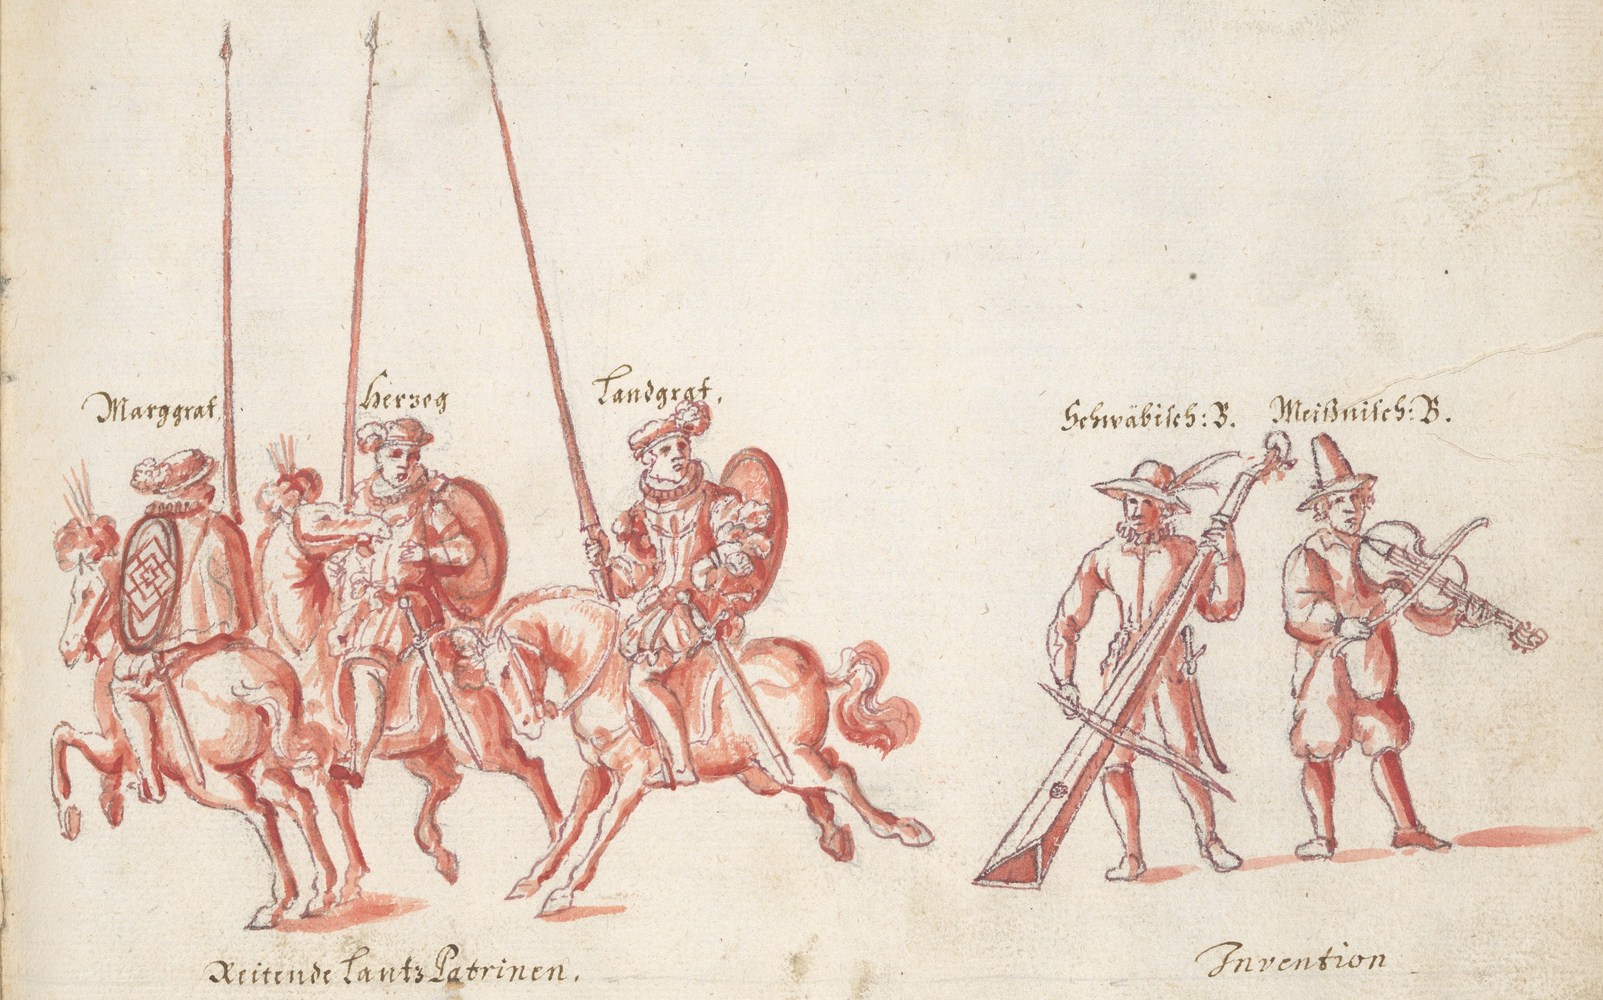 Marggraf.
Herzog
Landgraf.
Schwäbisch: B.
Meißnisch: B.
Reitende Lantz Patrinen.
Invention